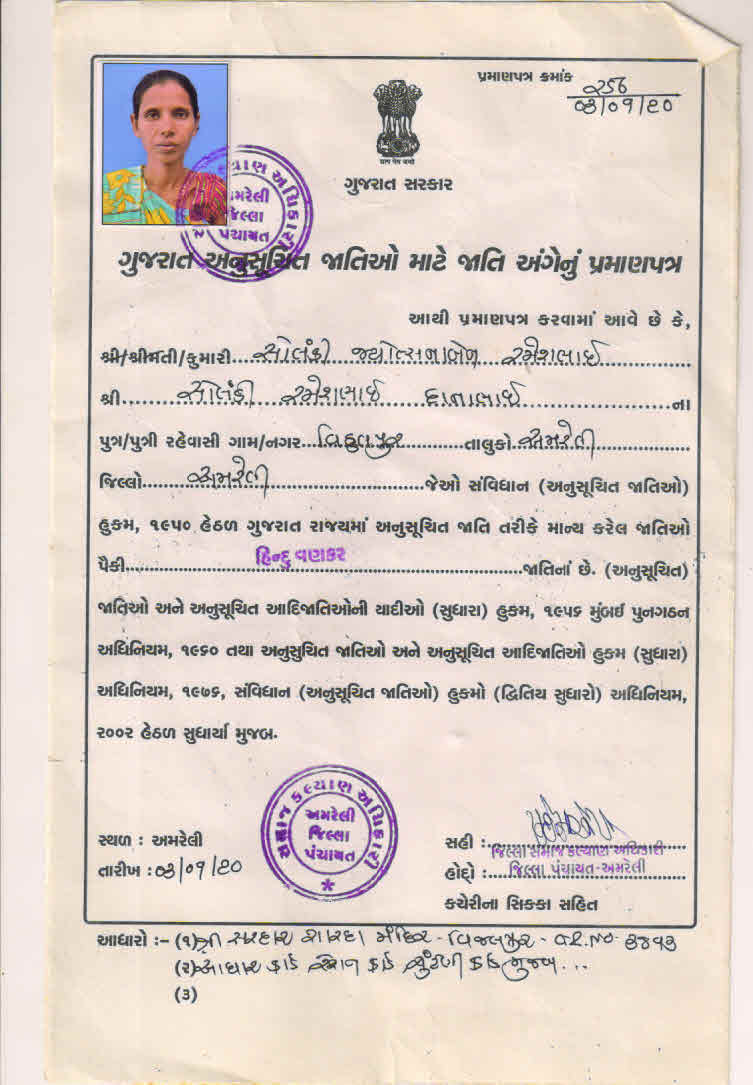 પ્રમાણપત્ર ક્રમાંક ૨૫૬
૦૩/૦૧/૨૦
ગુજરાત સરકાર
અમરેલી
જિલ્લા
પંચાયત
ગુજરાત અનુસૂચિત જાતિઓ માટે જાતિ અંગેનું પ્રમાણપત્ર
આથી પ્રમાણપત્ર કરવામાં આવે છે કે,
શ્રી/શ્રીમતી/કુમારી...સોલંકી જ્યોત્સનાબેન રમેશભાઈ
શ્રી...સોલંકી રમેશભાઈ દાનાભાઈ...ના
પુત્ર/પુત્રી રહેવાસી ગામ/નગર...વિઠ્ઠલપુર...તાલુકો...અમરેલી
જિલ્લો...અમરેલી...જેઓ સંવિધાન (અનુસૂચિત જાતિઓ)
હુકમ, ૧૯૫૦ હેઠળ ગુજરાત રાજ્યમાં અનુસૂચિત જાતિ તરીકે માન્ય કરેલ જાતિઓ
પૈકી...હિન્દુ વણકર...જાતિનાં છે. (અનુસૂચિત)
જાતિઓ અને અનુસૂચિત આદિજાતિઓની યાદીઓ (સુધારા) હુકમ, ૧૯૫૬ મુંબઈ પુનગઠન
અધિનિયમ, ૧૯૬૦ તથા અનુસુચિત જાતિઓ અને અનુસૂચિત આદિજાતિઓ હુકમ (સુધારા)
અધિનિયમ, ૧૯૭૬, સંવિધાન (અનુસૂચિત જાતિઓ) હુકમો (દ્વિતિય સુધારો) અધિનિયમ,
૨૦૦૨ હેઠળ સુધાર્યા મુજબ.
સમાજ કલ્યાણ અધિકારી
અમરેલી
જિલ્લા
પંચાયત
સ્થળ : અમરેલી
તારીખ : ૦૩/૦૧/૨૦
સહી :
જિલ્લા સમાજ કલ્યાણ અધિકારી
હોદ્દો : જિલ્લા પંચાયત-અમરેલી
કચેરીના સિક્કા સહિત
આધારો :- (૧) શ્રી સરદાર શારદા મંદિર - G.R.NO-
(૨) આધાર કાર્ડ રેશન કાર્ડ ચુંટણી કાર્ડ મુજબ...
(૩)